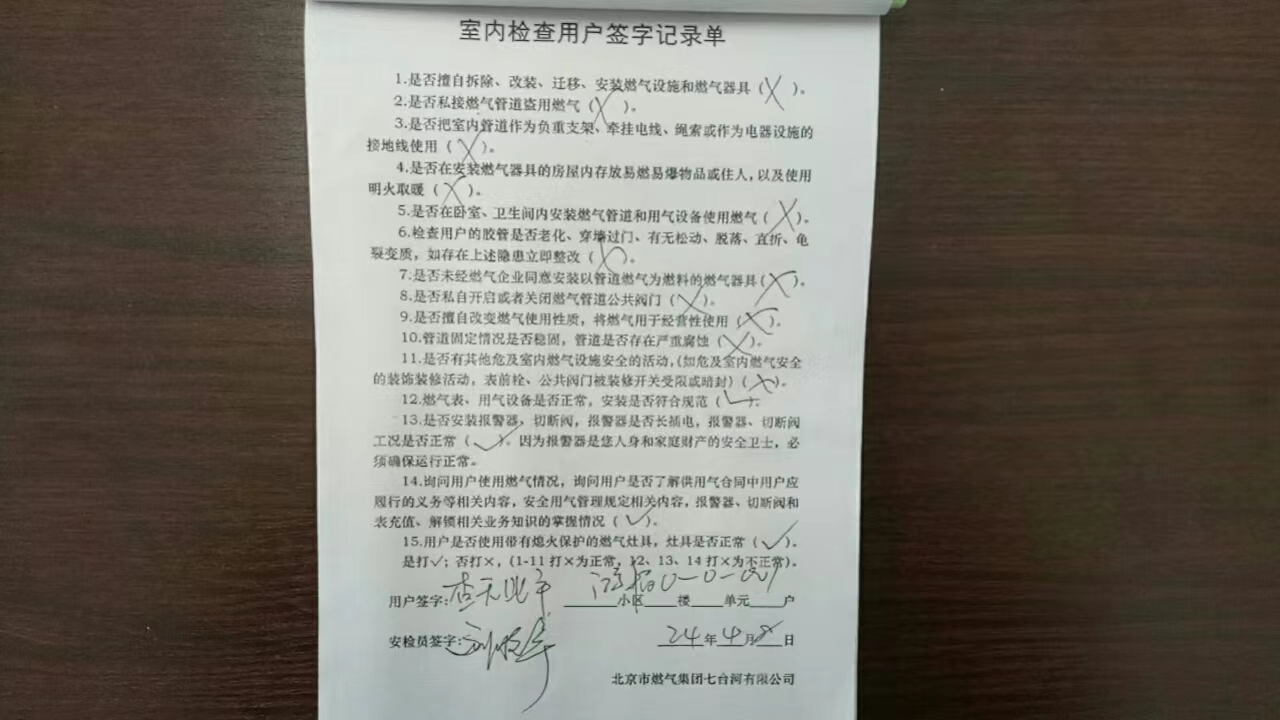 室内检查用户签字记录单
1.是否擅自拆除、改装、迁移、安装燃气设施和燃气器具(╳)。
2.是否私接燃气管道盗用燃气(╳)。
3.是否把室内管道作为负重支架、牵挂电线、绳索或作为电器设施的
接地线使用(╳)。
4.是否在安装燃气器具的房屋内存放易燃易爆物品或住人,以及使用
明火取暖(╳)。
5.是否在卧室、卫生间内安装燃气管道和用气设备使用燃气(╳)。
6.检查用户的胶管是否老化、穿墙过门、有无松动、脱落、直折、龟
裂变质,如存在上述隐患立即整改(╳)。
7.是否未经燃气企业同意安装以管道燃气为燃料的燃气器具(╳)。
8.是否私自开启或者关闭燃气管道公共阀门(╳)。
9.是否擅自改变燃气使用性质,将燃气用于经营性使用(╳)。
10.管道固定情况是否稳固,管道是否存在严重腐蚀(╳)。
11.是否有其他危及室内燃气设施安全的活动,(如危及室内燃气安全
的装饰装修活动,表前栓、公共阀门被装修开关受限或暗封)(╳)。
12.燃气表、用气设备是否正常,安装是否符合规范(✓)。
13.是否安装报警器、切断阀,报警器是否长插电,报警器、切断阀
工况是否正常(✓)。因为报警器是您人身和家庭财产的安全卫士,必
须确保运行正常。
14.询问用户使用燃气情况,询问用户是否了解供用气合同中用户应
履行的义务等相关内容,安全用气管理规定相关内容,报警器、切断阀和
表充值、解锁相关业务知识的掌握情况(✓)。
15.用户是否使用带有熄火保护的燃气灶具,灶具是否正常(✓)。
是打✓;否打×,(1-11 打×为正常,12、13、14 打×为不正常)。
用户签字: 小区 楼 单元 户
安检员签字: 24年4月8日
北京市燃气集团七台河有限公司